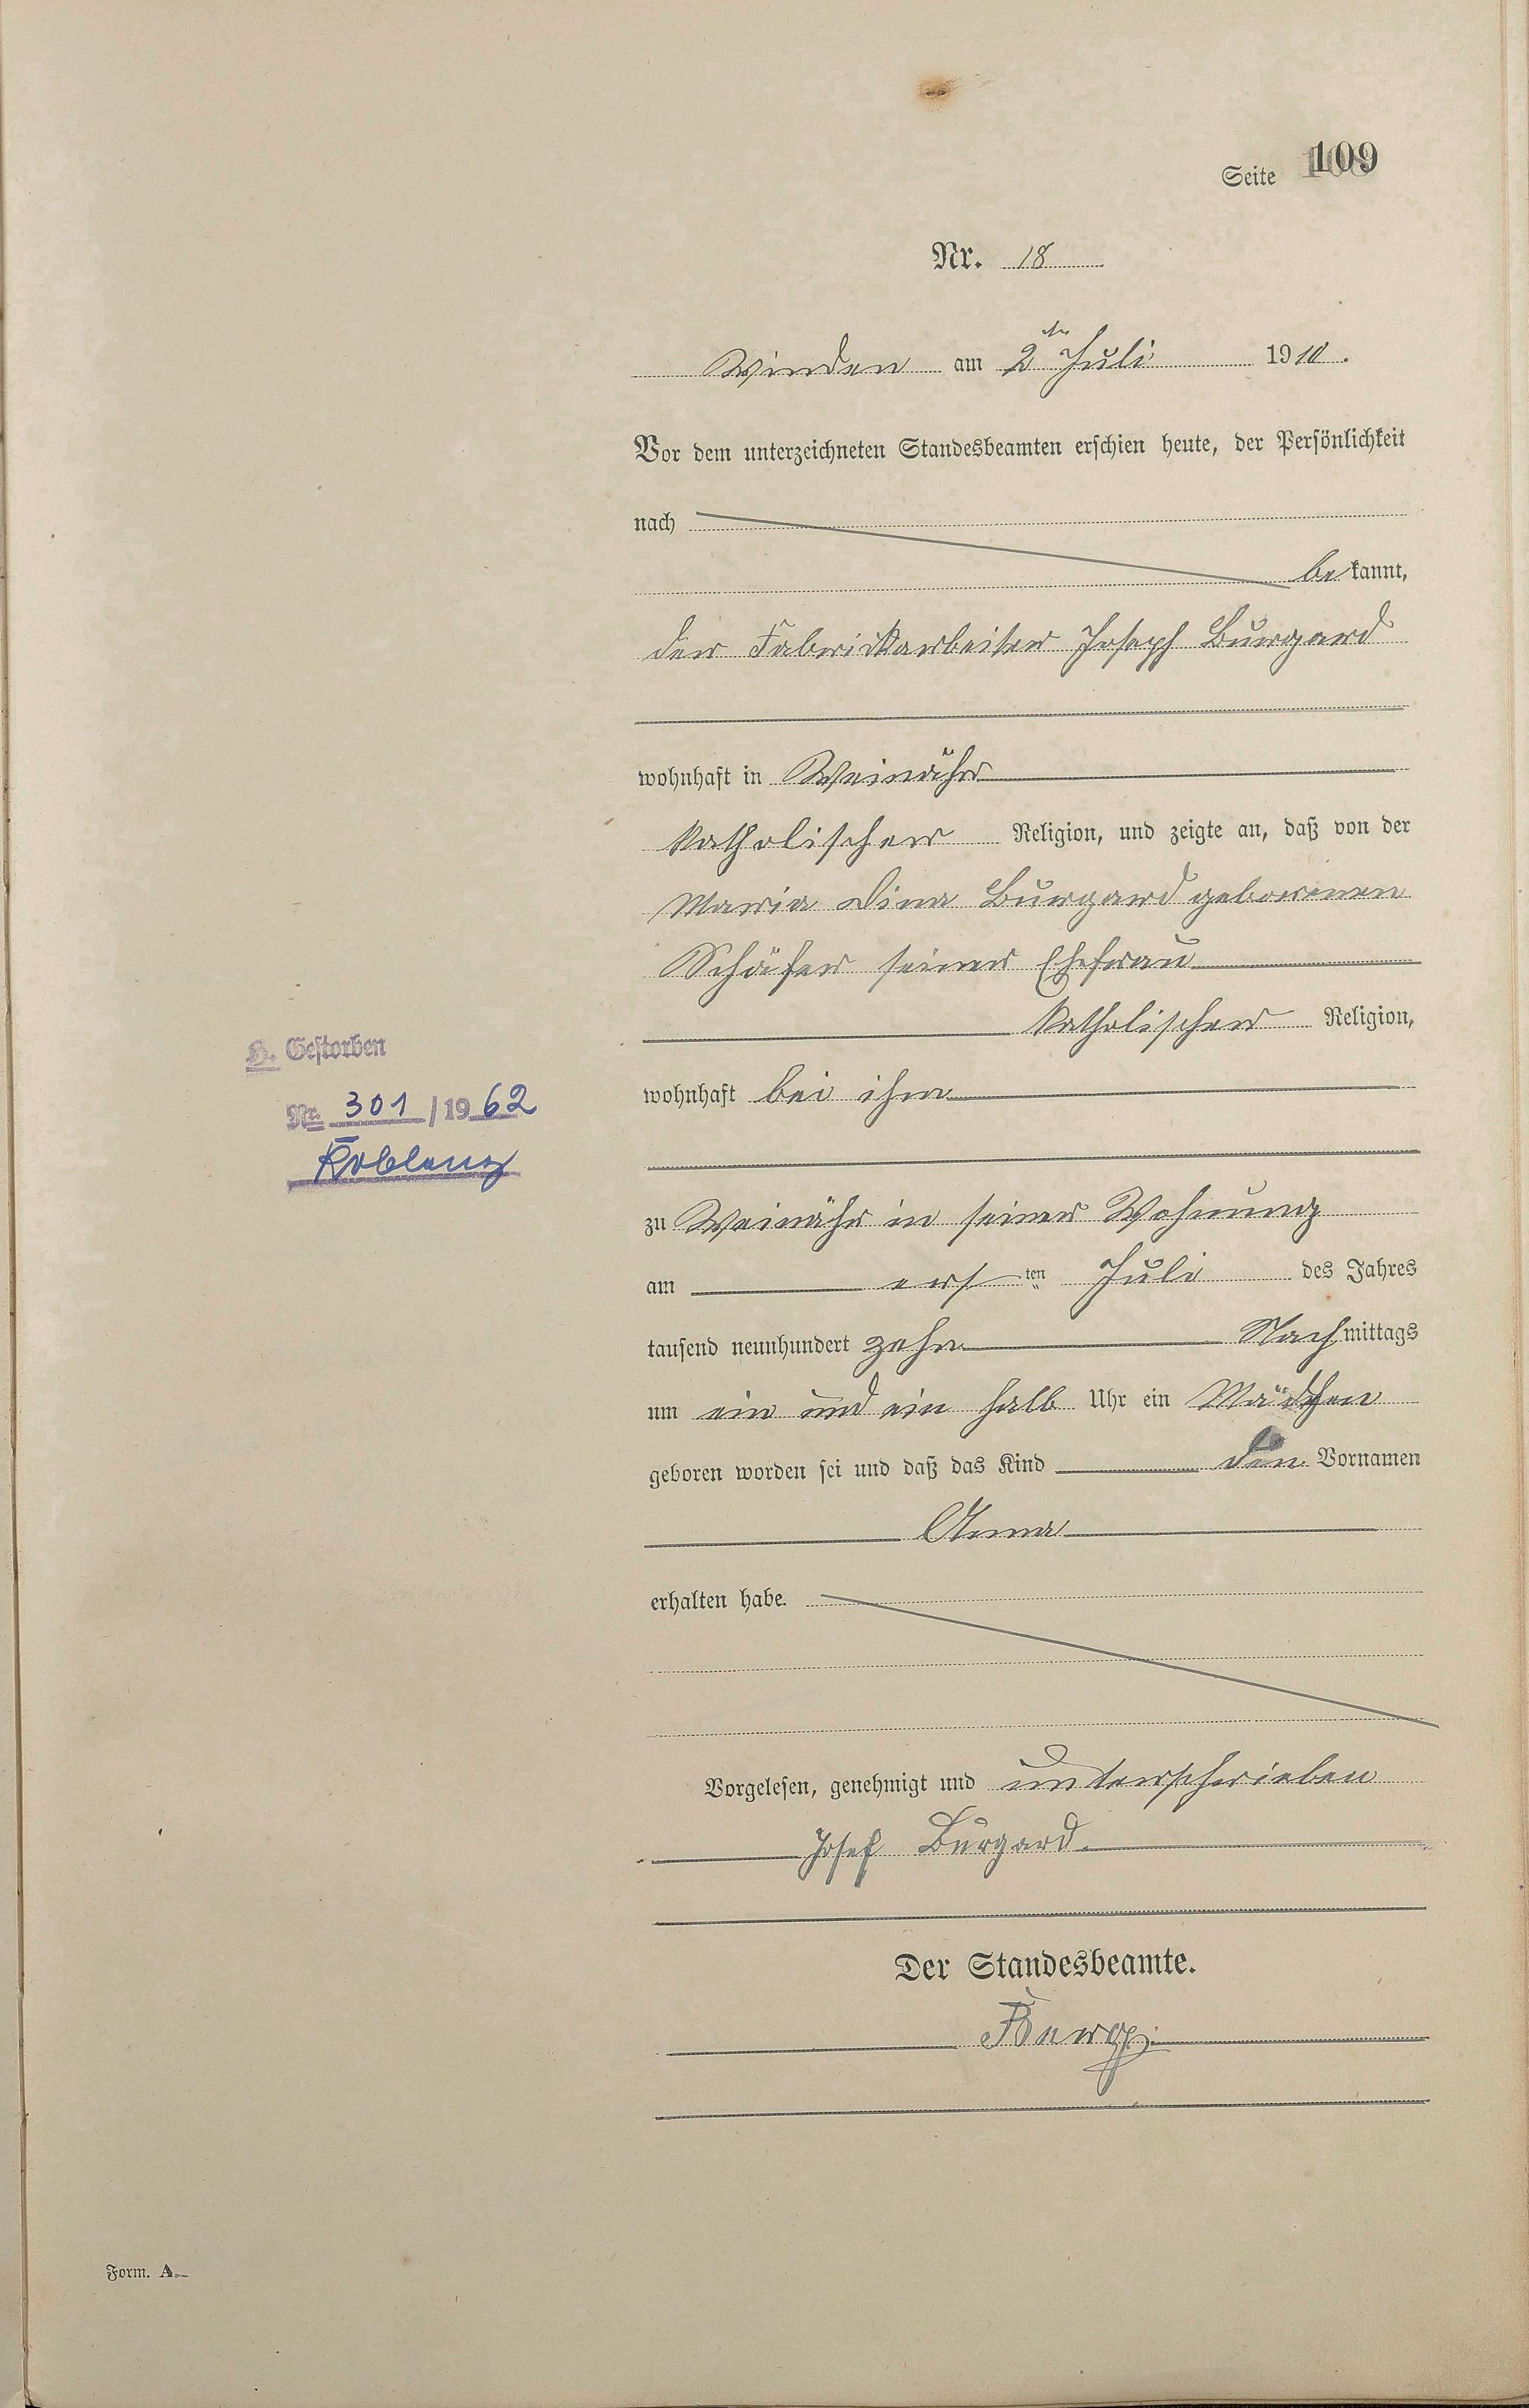 Seite 109
Nr. 18
Winden am 2ten Juli 1910.
Vor dem unterzeichneten Standesbeamten erschien heute, der Persönlichkeit
nach
bekannt,
der Fabrickarbeiter Joseph Burgard
wohnhaft in Weinähr
katholischer Religion, und zeigte an, daß von der
Maria Dina Burgard geborenen
Schäfer seiner Ehefrau
katholischer Religion,
H. Gestorben
Nr. 301 / 1962
Koblenz
wohnhaft bei ihm
zu Weinähr in seiner Wohnung
am ersten Juli des Jahres
tausend neunhundert zehn Nachmittags
um ein und ein halb Uhr ein Mädchen
geboren worden sei und daß das Kind den Vornamen
Anna
erhalten habe.
Vorgelesen, genehmigt und unterschrieben
Josef Burgard.
Der Standesbeamte.
Form. A.